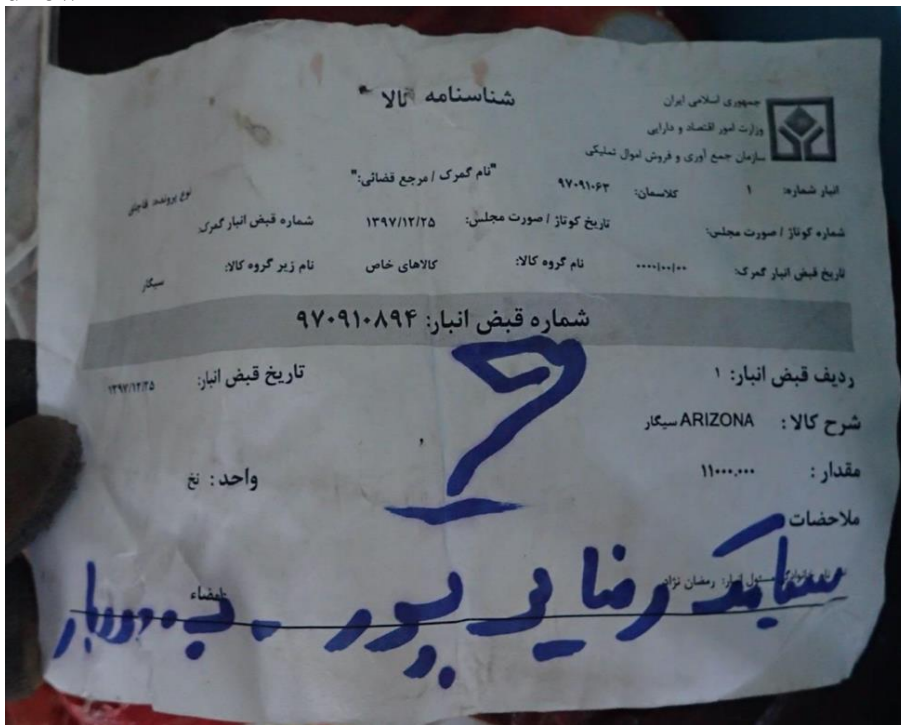 شناسنامه کالا
جمهوری اسلامی ایران
وزارت امور اقتصاد و دارایی
سازمان جمع آوری و فروش اموال تملیکی
انبار شماره: ۱ کلاسمان: ۹۷۰۹۱۰۶۳ "نام گمرک / مرجع قضائی:" نوع پرونده: قاچاق
شماره کوتاژ / صورت مجلس: تاریخ کوتاژ / صورت مجلس: ۱۳۹۷/۱۲/۲۵ شماره قبض انبار گمرک:
تاریخ قبض انبار گمرک: ۰۰۰۰/۰۰/۰۰ نام گروه کالا: کالاهای خاص نام زیر گروه کالا: سیگار
شماره قبض انبار: ۹۷۰۹۱۰۸۹۴
ردیف قبض انبار: ۱ تاریخ قبض انبار: ۱۳۹۷/۱۲/۲۵
شرح کالا : ARIZONA سیگار
مقدار : ۱۱۰۰۰.۰۰۰ واحد : نخ
ملاحضات
نام خانوادگی مسئول انبار: رمضان نژاد امضاء
سیامک رضایی پور -